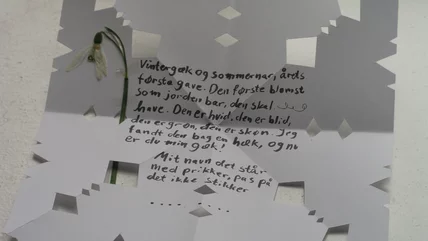 Vintergæk og sommernar, årets
første gave. Den første blomst
som jorden bar, den skal
have. Den er hvid, den er blid,
den er grøn, den er skøn. Jeg
fandt den bag en hæk, og nu
er du min gæk!
Mit navn det står
med prikker, pas på
det ikke stikker
.......